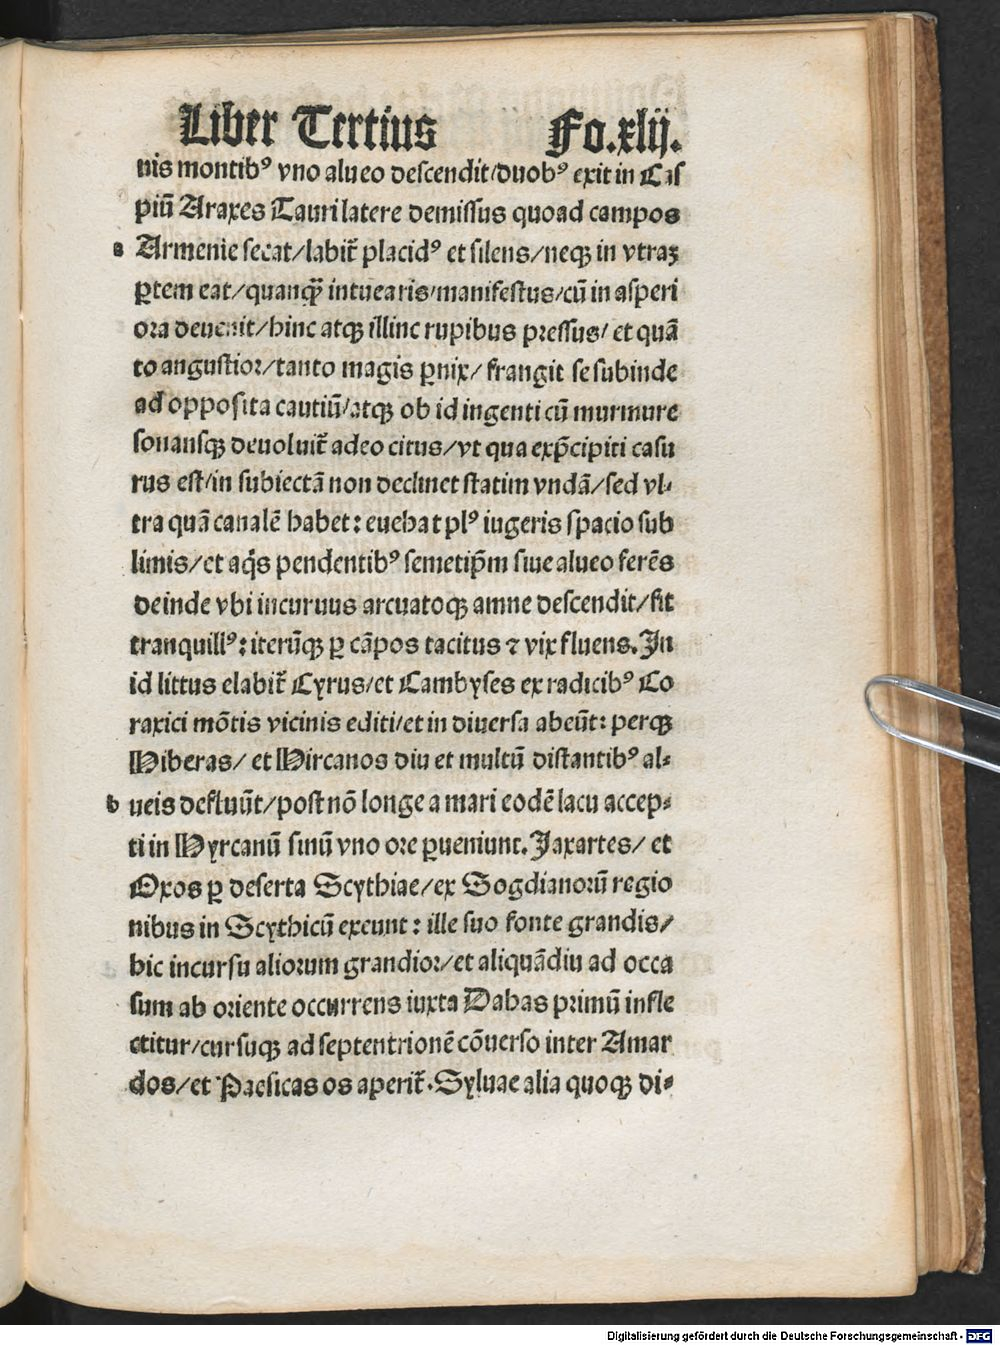 Liber Tertius Fo.xlij.
nis montibꝰ vno alueo descendit/duobꝰ exit in Cas
piū Araxes Tauri latere demissus quoad campos
a Armenie secat/labit̄ placidꝰ et silens/neqꝫ in vtraꝫ
ꝑtem eat/quanqꝫ̄ intuearis/manifestus/cū in asperi
ora deuenit/hinc atqꝫ illinc rupibus pressus/ et quā
to angustior/tanto magis ꝑnix/ frangit se subinde
ad opposita cautiū/atqꝫ ob id ingenti cū murmure
sonansqꝫ deuoluit̄ adeo citus/vt qua exp̄cipiti casu
rus est/in subiectā non declinet statim vndā/sed vl⸗
tra quā canalē habet: euehat plꝰ iugeris spacio sub
limis/et aq̄s pendentibꝰ semetip̄m siue alueo ferēs
deinde vbi incuruus arcuatoqꝫ amne descendit/fit
tranquillꝰ: iterūqꝫ ꝑ cāpos tacitus ⁊ vix fluens. In
id littus elabit̄ Cyrus/et Cambyses ex radicibꝰ Co
raxici mōtis vicinis editi/et in diuersa abeūt: perqꝫ
Hiberas/ et Hircanos diu et multū distantibꝰ al⸗
b ueis defluūt/post nō longe a mari eodē lacu accep⸗
ti in Hyrcanū sinū vno ore ꝑueniunt. Jaxartes/ et
Oxos ꝑ deserta Scythiae/ex Sogdianorū regio
nibus in Scythicū exeunt: ille suo fonte grandis/
hic incursu aliorum grandior/et aliquādiu ad occa
sum ab oriente occurrens iuxta Dabas primū infle
ctitur/cursuqꝫ ad septentrionē cōuerso inter Amar
dos/et Paesicas os aperit̄. Syluae alia quoqꝫ di⸗
Digitalisierung gefördert durch die Deutsche Forschungsgemeinschaft - DFG